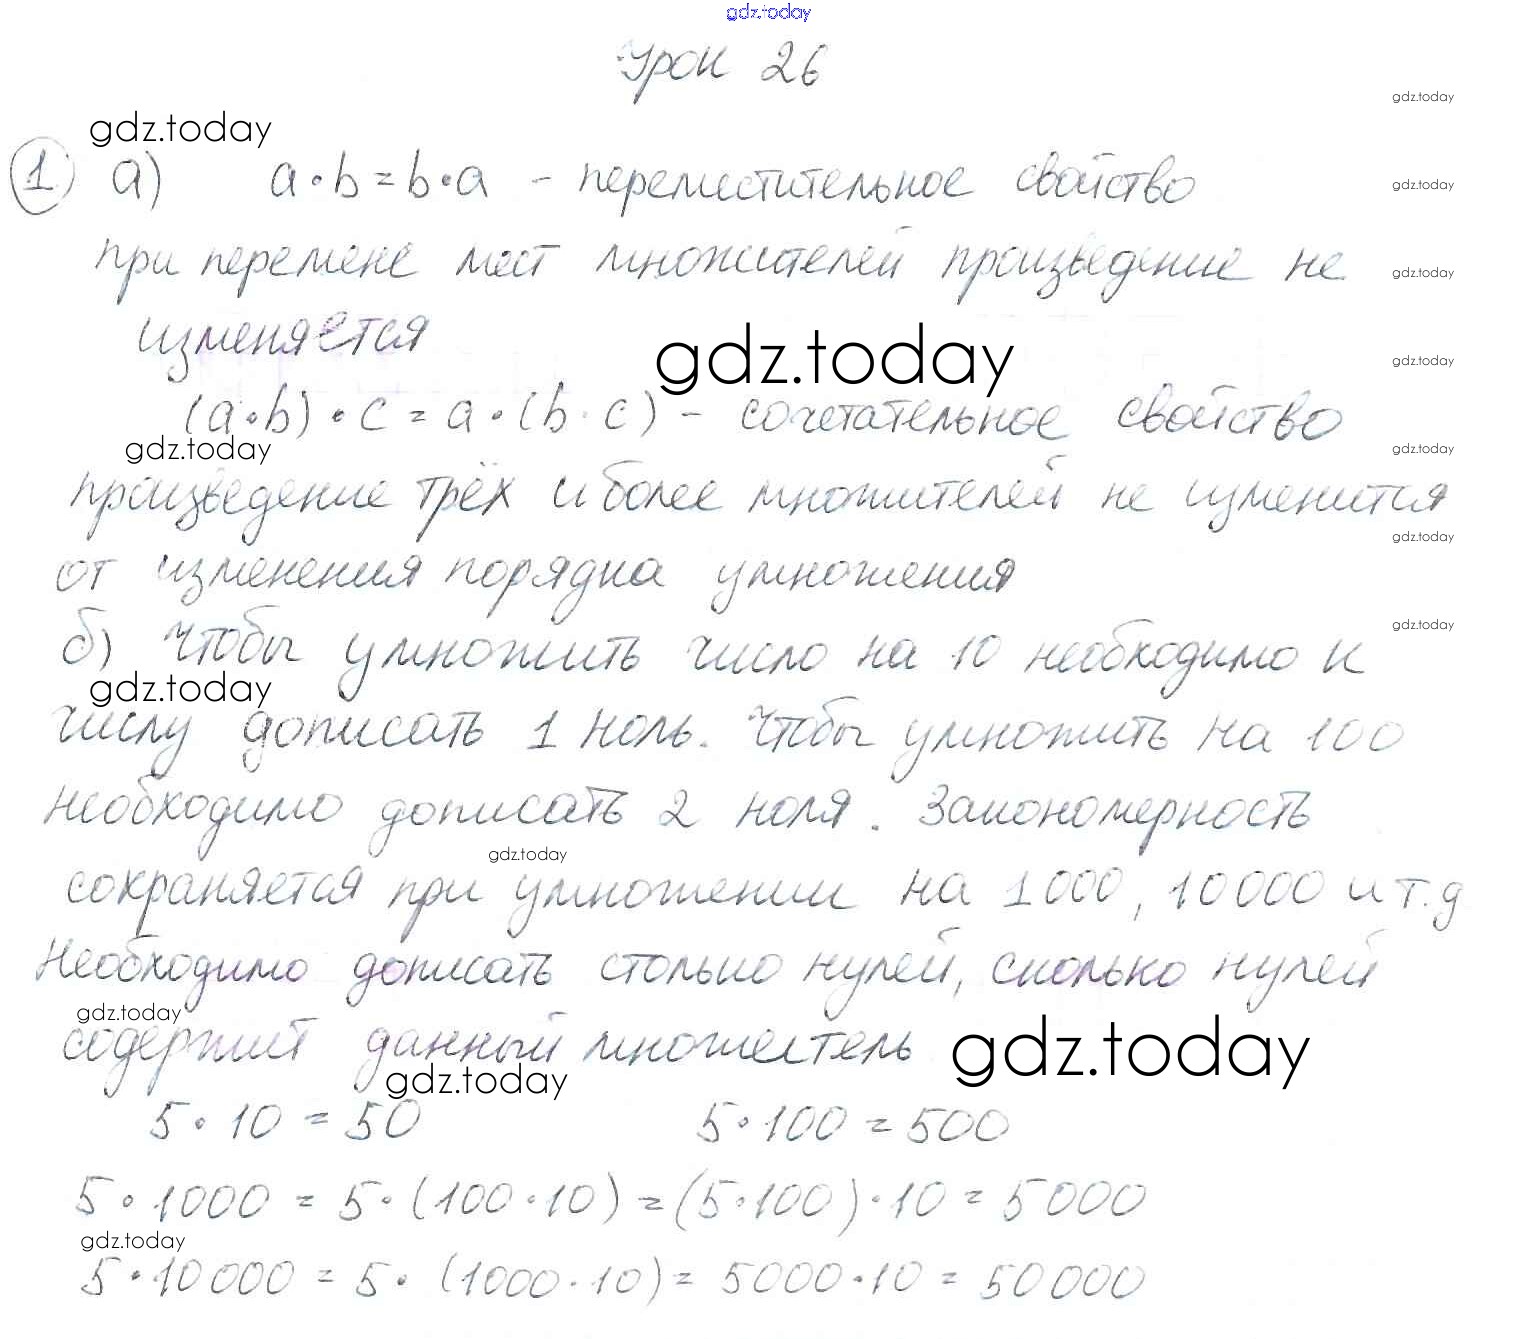 gdz.today
Урок 26
gdz.today
gdz.today
1 а) a·b=b·a - переместительное свойство
gdz.today
при перемене мест множителей произведение не
gdz.today
изменяется
gdz.today
gdz.today
(a·b)·c=a·(b·c) - сочетательное свойство
gdz.today
gdz.today
произведение трёх и более множителей не изменится
gdz.today
от изменения порядка умножения
gdz.today
б) Чтобы умножить число на 10 необходимо к
gdz.today
числу дописать 1 ноль. Чтобы умножить на 100
необходимо дописать 2 ноля. Закономерность
gdz.today
сохраняется при умножении на 1000, 10000 и т.д
Необходимо дописать столько нулей, сколько нулей
gdz.today
содержит данный множитель
gdz.today
gdz.today
5·10=50 5·100=500
5·1000=5·(100·10)=(5·100)·10=5000
gdz.today
5·10000=5·(1000·10)=5000·10=50000